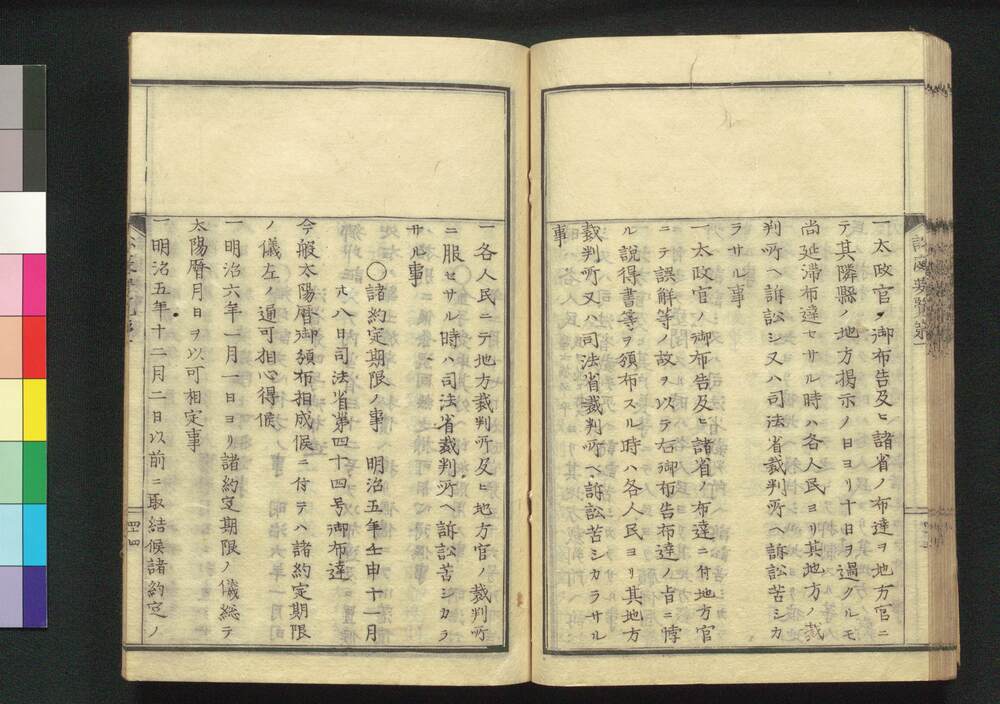 一太政官ノ御布告及ヒ諸省ノ布達ヲ地方官ニ
テ其隣縣ノ地方掲示ノ日ヨリ十日ヲ過クルモ
尚延滞布達セサル時ハ各人民ヨリ其地方ノ裁
判所ヘ訴訟シ又ハ司法省裁判所ヘ訴訟苦シカ
ラサル事
一太政官ノ御布告及ヒ諸省ノ布達ニ付地方官
ニテ誤解等ノ故ヲ以テ右御布告布達ノ旨ニ悖
ル説得書等ヲ頒布スル時ハ各人民ヨリ其地方
裁判所又ハ司法省裁判所ヘ訴訟苦シカラサル
事
一各人民ニテ地方裁判所及ヒ地方官ノ裁判所
ニ服セサル時ハ司法省裁判所ヘ訴訟苦シカラ
サル事
〇諸約定期限ノ事 明治五年壬申十一月
廿八日司法省第四十四号御布達
今般太陽暦御頒布相成候ニ付テハ諸約定期限
ノ儀左ノ通可相心得候
一明治六年一月一日ヨリ諸約定期限ノ儀総テ
太陽暦月日ヲ以可相定事
一明治五年十二月二日以前ニ取結候諸約定ノ
四十四